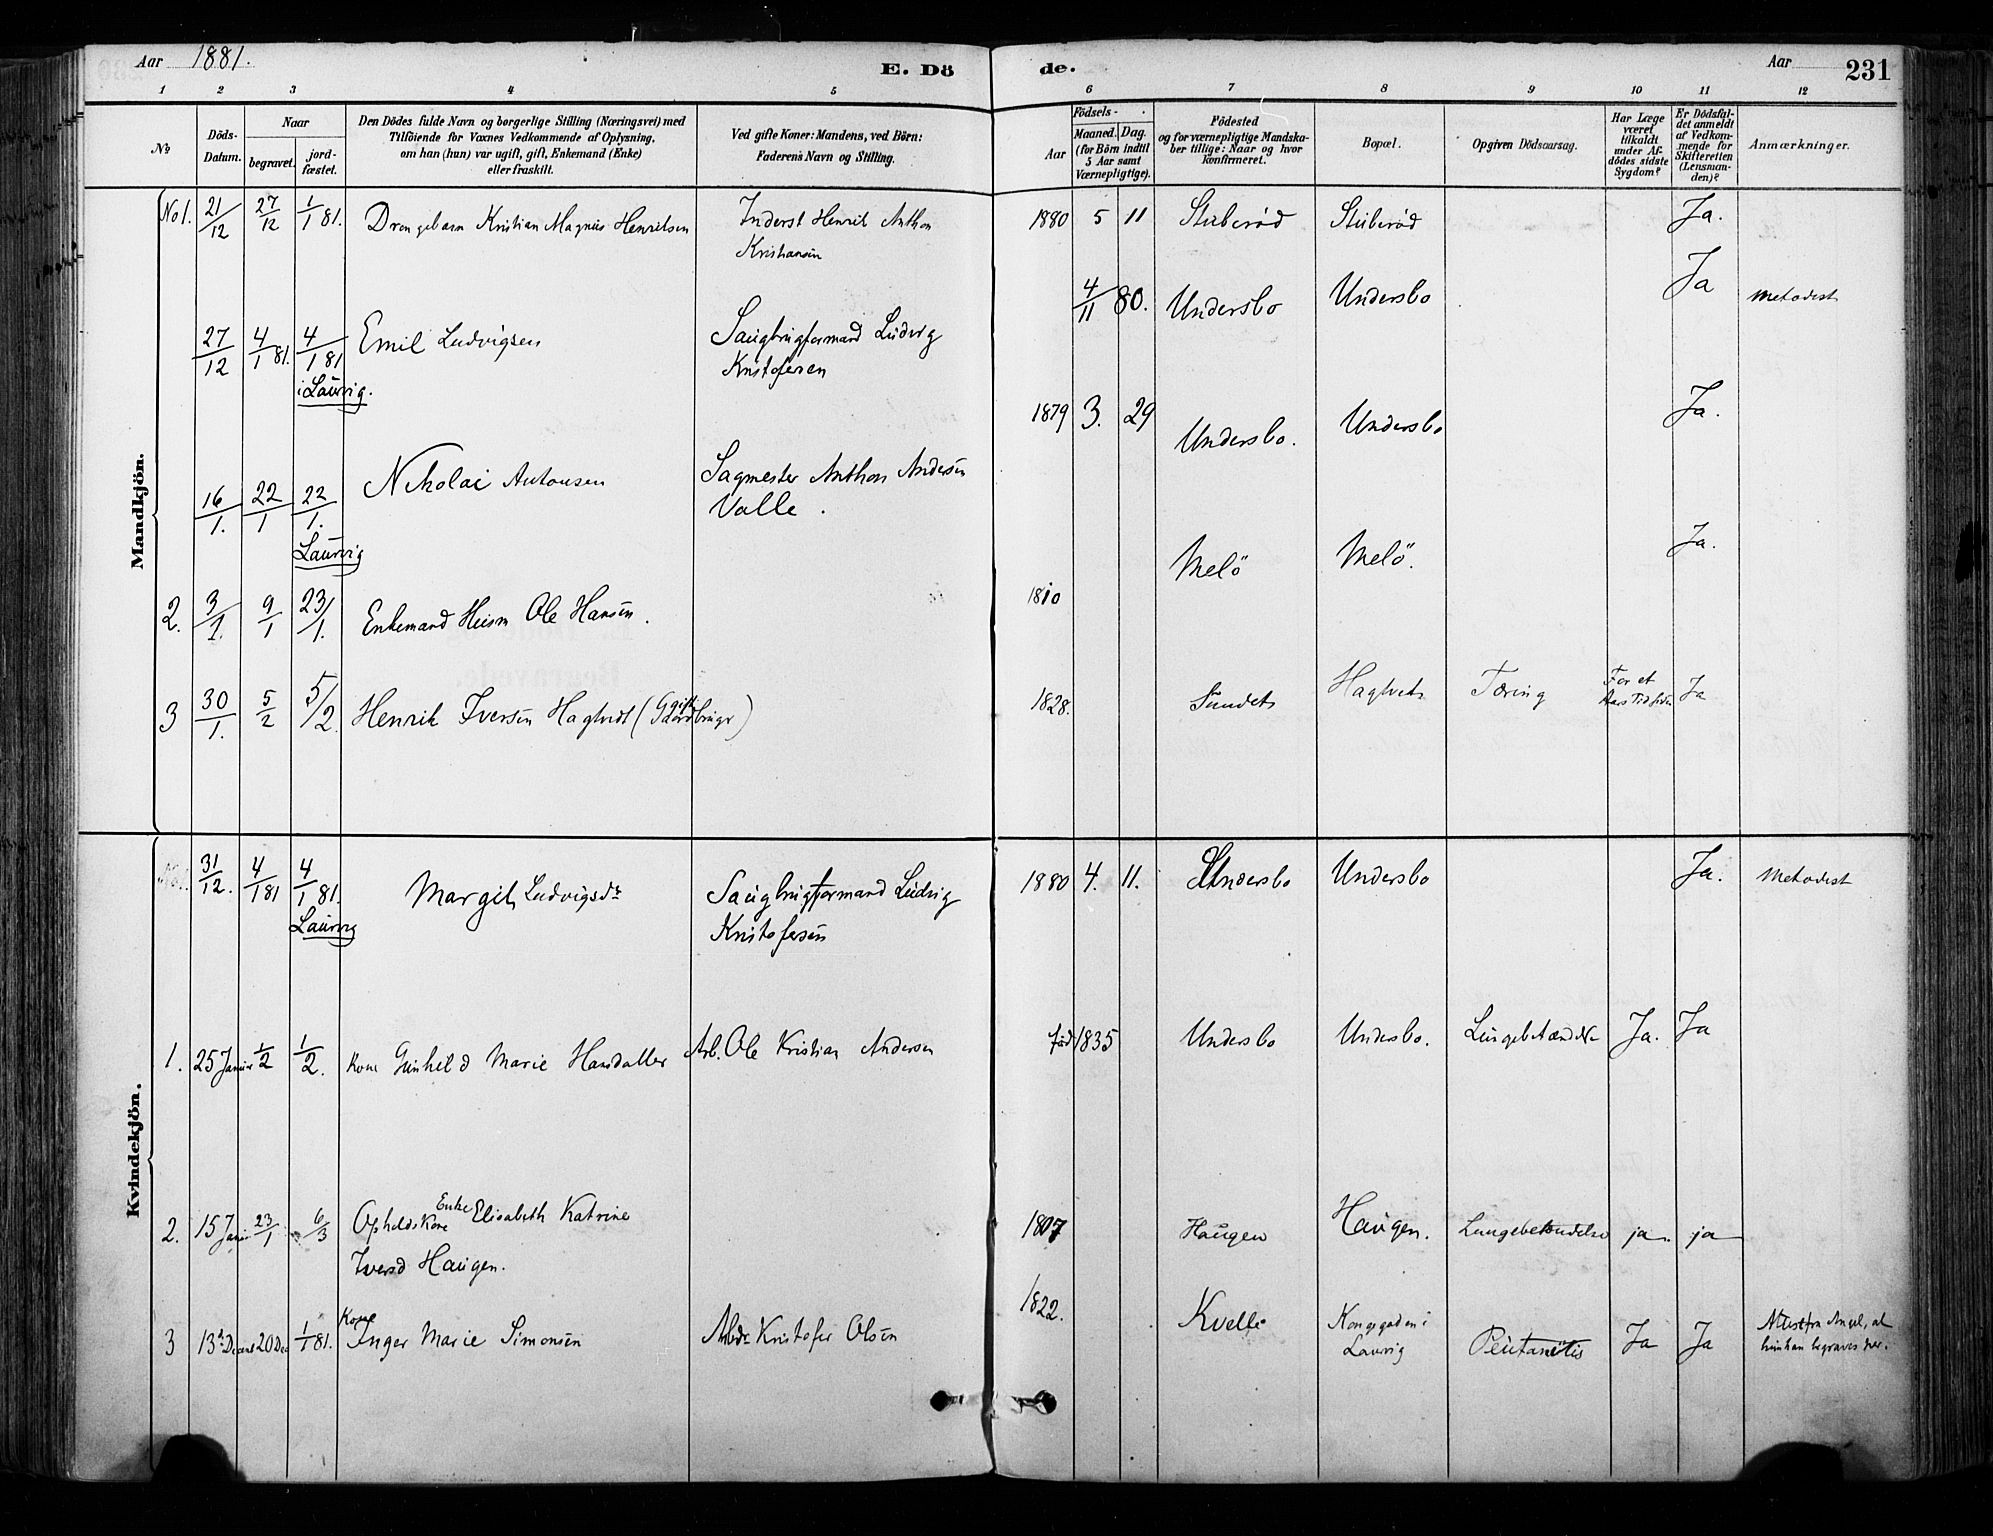 Aar 1881.
E. Dö
de.
Aar
231
1 2 3 4 5 6 7 8 9 10 11 12
No
Döds-
Datum.
Naar
begravet.
jord-
fæstet.
Den Dödes fulde Navn og borgerlige Stilling (Næringsvei) med
Tilföiende for Voxnes Vedkommende af Oplysning,
om han (hun) var ugift, gift, Enkemand (Enke)
eller fraskilt.
Ved gifte Koner: Mandens, ved Börn:
Faderens Navn og Stilling.
Födsels-
Aar
Maaned. Dag.
(for Börn indtil
5 Aar samt
Værnepligtige).
Födested
og for værnepligtige Mandska-
ber tillige: Naar og hvor
konfirmeret.
Bopæl.
Opgiven Dödsaarsag.
Har Læge
været
tilkaldt
under Af-
dödes sidste
Sygdom?
Er Dödsfal-
det anmeldt
af Vedkom-
mende for
Skifteretten
(Lensman-
den)?
Anmærkninger.
Mandkjön.
No 1. 21/12 27/12 1/1 81. Drengebarn Kristian Magnus Henriksen Inderst Henrik Anthon
Kristiansen
1880 5 11 Stuberød Stuberød Ja.
27/12 4/1 81. 4/1 81 Emil Ludvigsen Saugbrugformand Ludvig
i Laurvig. Kristofersen
4/11 80. Undersbo Undersbo Ja Metodist
16/1. 22/1 22/1. Nikolai Antonsen Sagmester Anthon Andersen
Laurvig Valle.
1879 3. 29 Undersbo. Undersbo Ja.
2. 3/1. 9/1 23/1. Enkemand Huusm Ole Hansen.
1810 Melö Melö. Ja.
3 30/1. 5/2 5/2. Henrik Iversen Hagtvedt (gift Gaardbruger)
1828. Sundet Hagtvet Tæring For et
Aars Tid siden Ja
Kvindekjön.
No 1. 31/12. 4/1 81 4/1 81. Margit Ludvigsdr Saugbrugformand Ludvig
Laurvig Kristofersen
1880 4. 11. Undersbo Undersbo Ja. Metodist
1. 25 Januar 1/2 1/2. Kone Gunhild Marie Hansdatter Arb. Ole Kristian Andersen
fød 1835 Undersbo Undersbo. Lungebetændelse Ja. Ja
2. 15 Januar 23/1 6/3 Opholdskone Enke Elisabeth Katrine
Iversd Haugen.
1807 Haugen Haugen. Lungebetændelse ja. ja
3 13de Decem 20 Dec 1/1 81. Kone
Inger Marie Simonsen Arbdr Kristofer Olsen
1822. Kvelle Kongegaden i
Laurvig Ja Ja Attest fra Angel, at
hun kan begraves her.